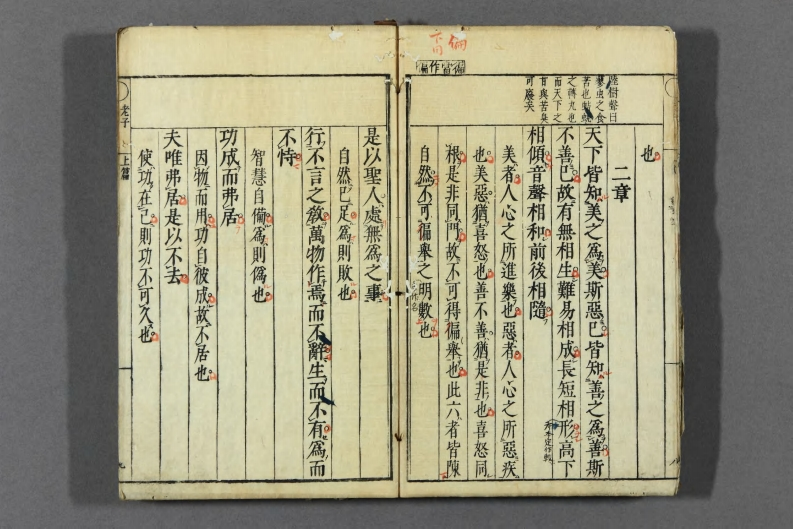 也
二章
天下皆知美之爲美斯惡已皆知善之爲善斯
不善已故有無相生難易相成長短相形高下
相傾音聲相和前後相隨
美者人心之所進樂也惡者人心之所惡疾
也美惡猶喜怒也善不善猶是非也喜怒同
根是非同門故不可得偏舉也此六者皆陳
自然不可偏舉之明數也
是以聖人處無爲之事
自然已足爲則敗也
行不言之教萬物作焉而不辭生而不有爲而
不恃
智慧自備爲則僞也
功成而弗居
因物而用功自彼成故不居也
夫唯弗居是以不去
使功在己則功不可久也
老子
上篇
樹聲曰
蓼虫之食
苦也
之轉丸也
而天下之
甘與苦臭
可廢矣
偏當作